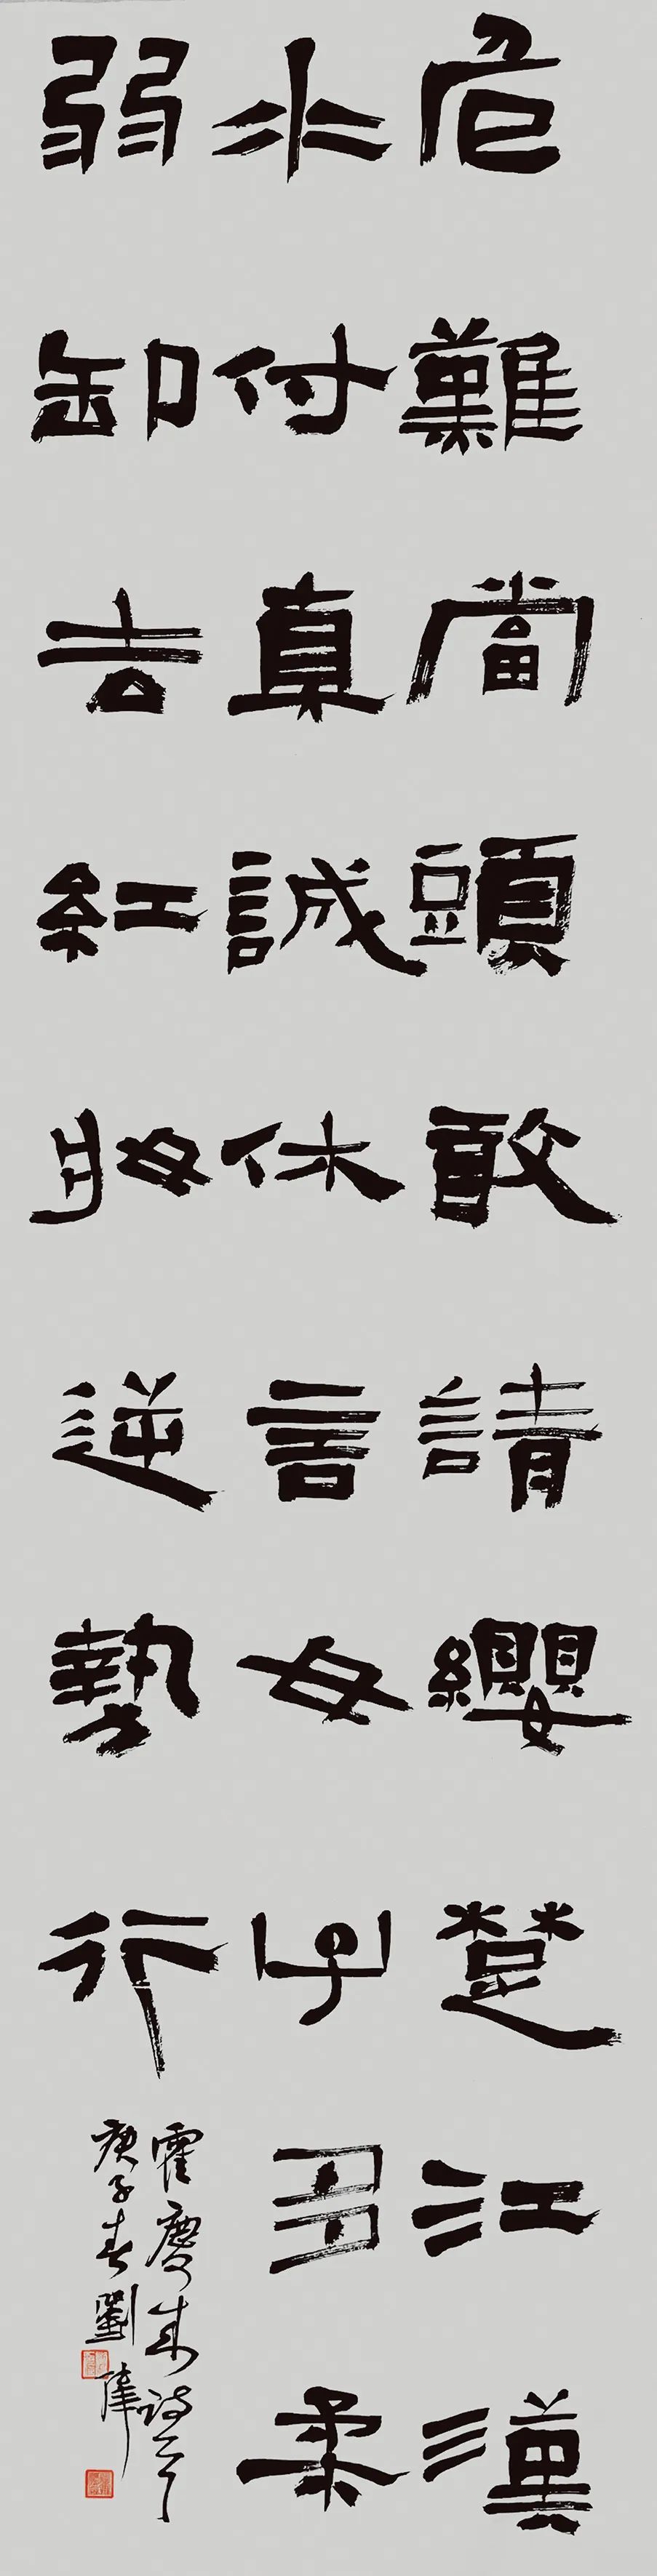 危難當頭敢請纓楚江漢
水付真誠休言女子多柔
弱卸去紅妝逆勢行
霍慶來詩
庚子春劉